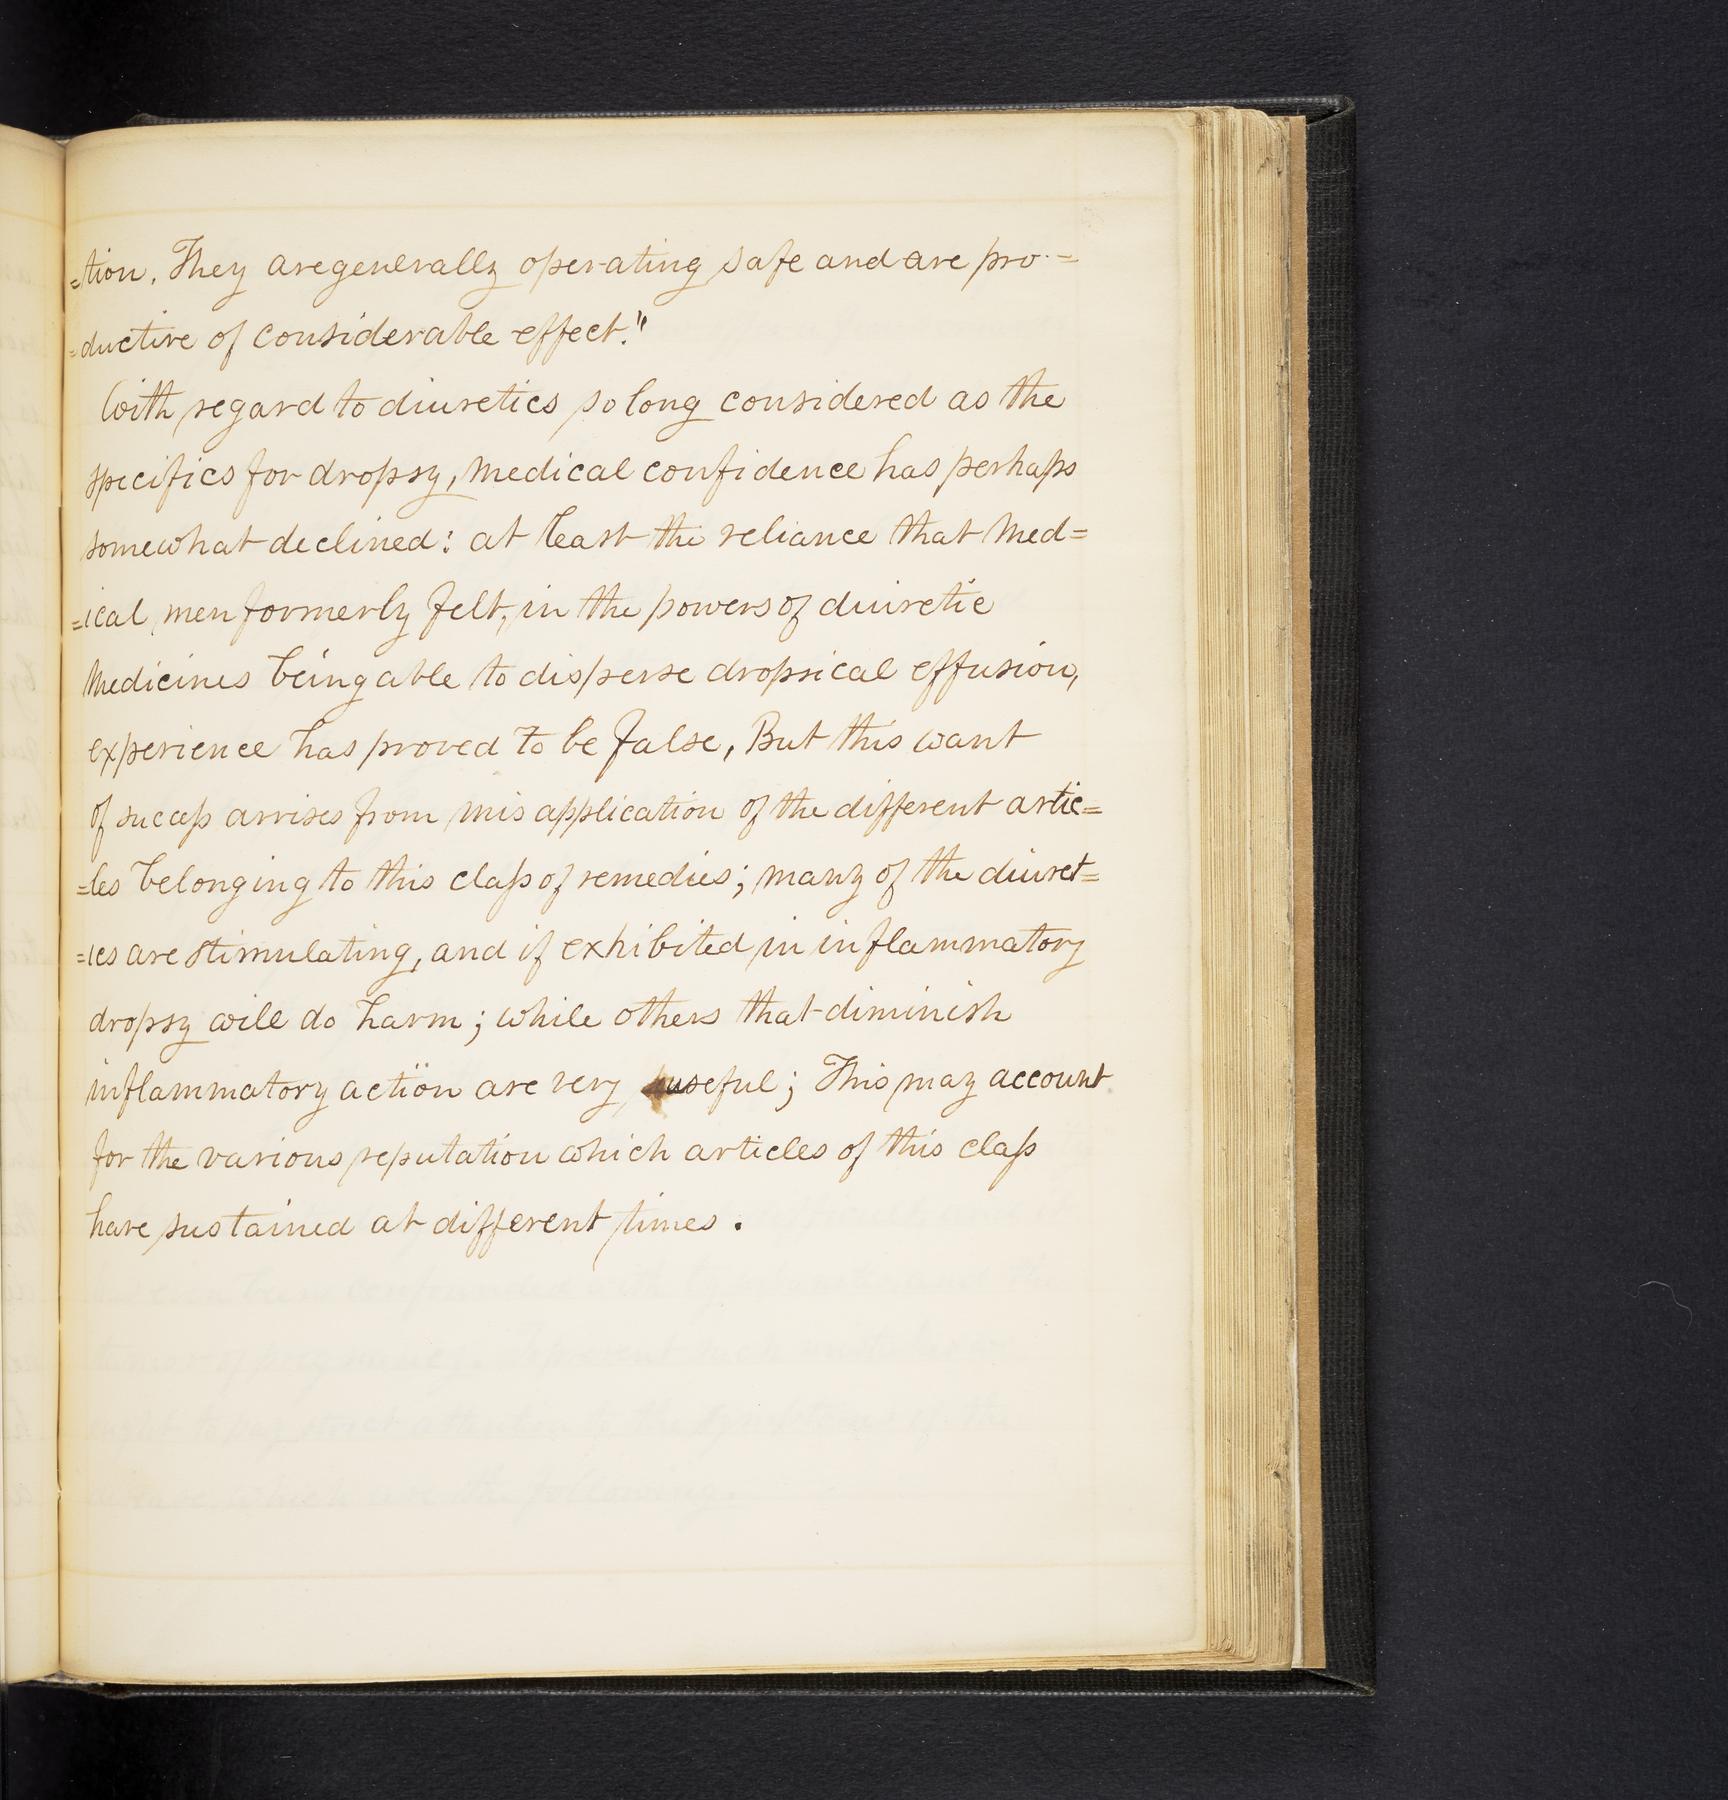 =tion. They are generally operating safe and are pro-=
=ductive of considerable effect."
With regard to diuretics so long considered as the
specifics for dropsy, medical confidence has perhaps
somewhat declined: at least the reliance that Med=
=ical men formerly felt, in the powers of diuretic
Medicines being able to disperse dropsical effusion,
experience has proved to be false, But this want
of success arrises from misapplication of the different artic=
=les belonging to this class of remedies; many of the diuret=
=ics are stimulating, and if exhibited in inflammatory
dropsy will do harm; while others that diminish
inflammatory action are very useful; This may account
for the various reputation which articles of this class
have sustained at different times.